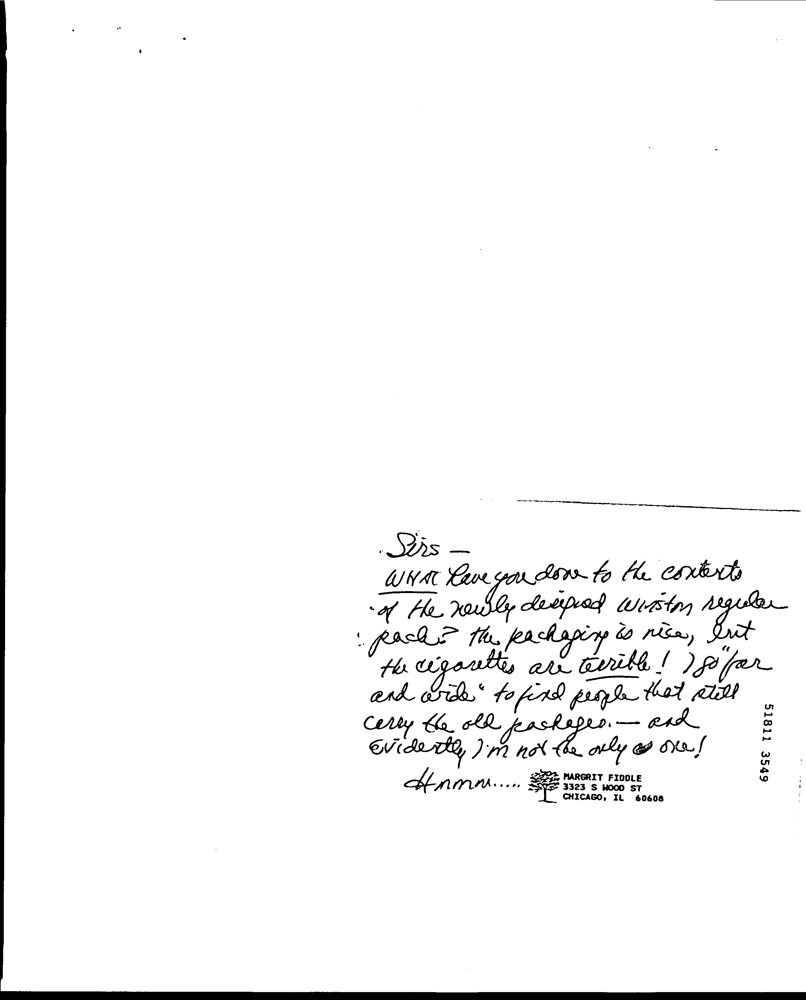 Sirs —
WHAT have you done to the contents
of the newly designed Winston regular
pack? The packaging is nice, but
the cigarettes are terrible! I go "far
and wide" to find people that still
carry the old packages. — and
Evidently I'm not the only one!
Hmmm.....
MARGRIT FIDDLE
3323 S WOOD ST
CHICAGO, IL 60608
51811 3549